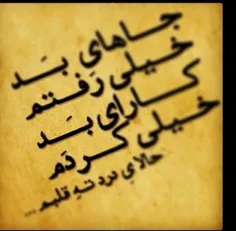 جاهای بَد
خیلی رَفتم
کارای بَد
خیلی کردَم
حالایِ درد تهِ قلبم ...